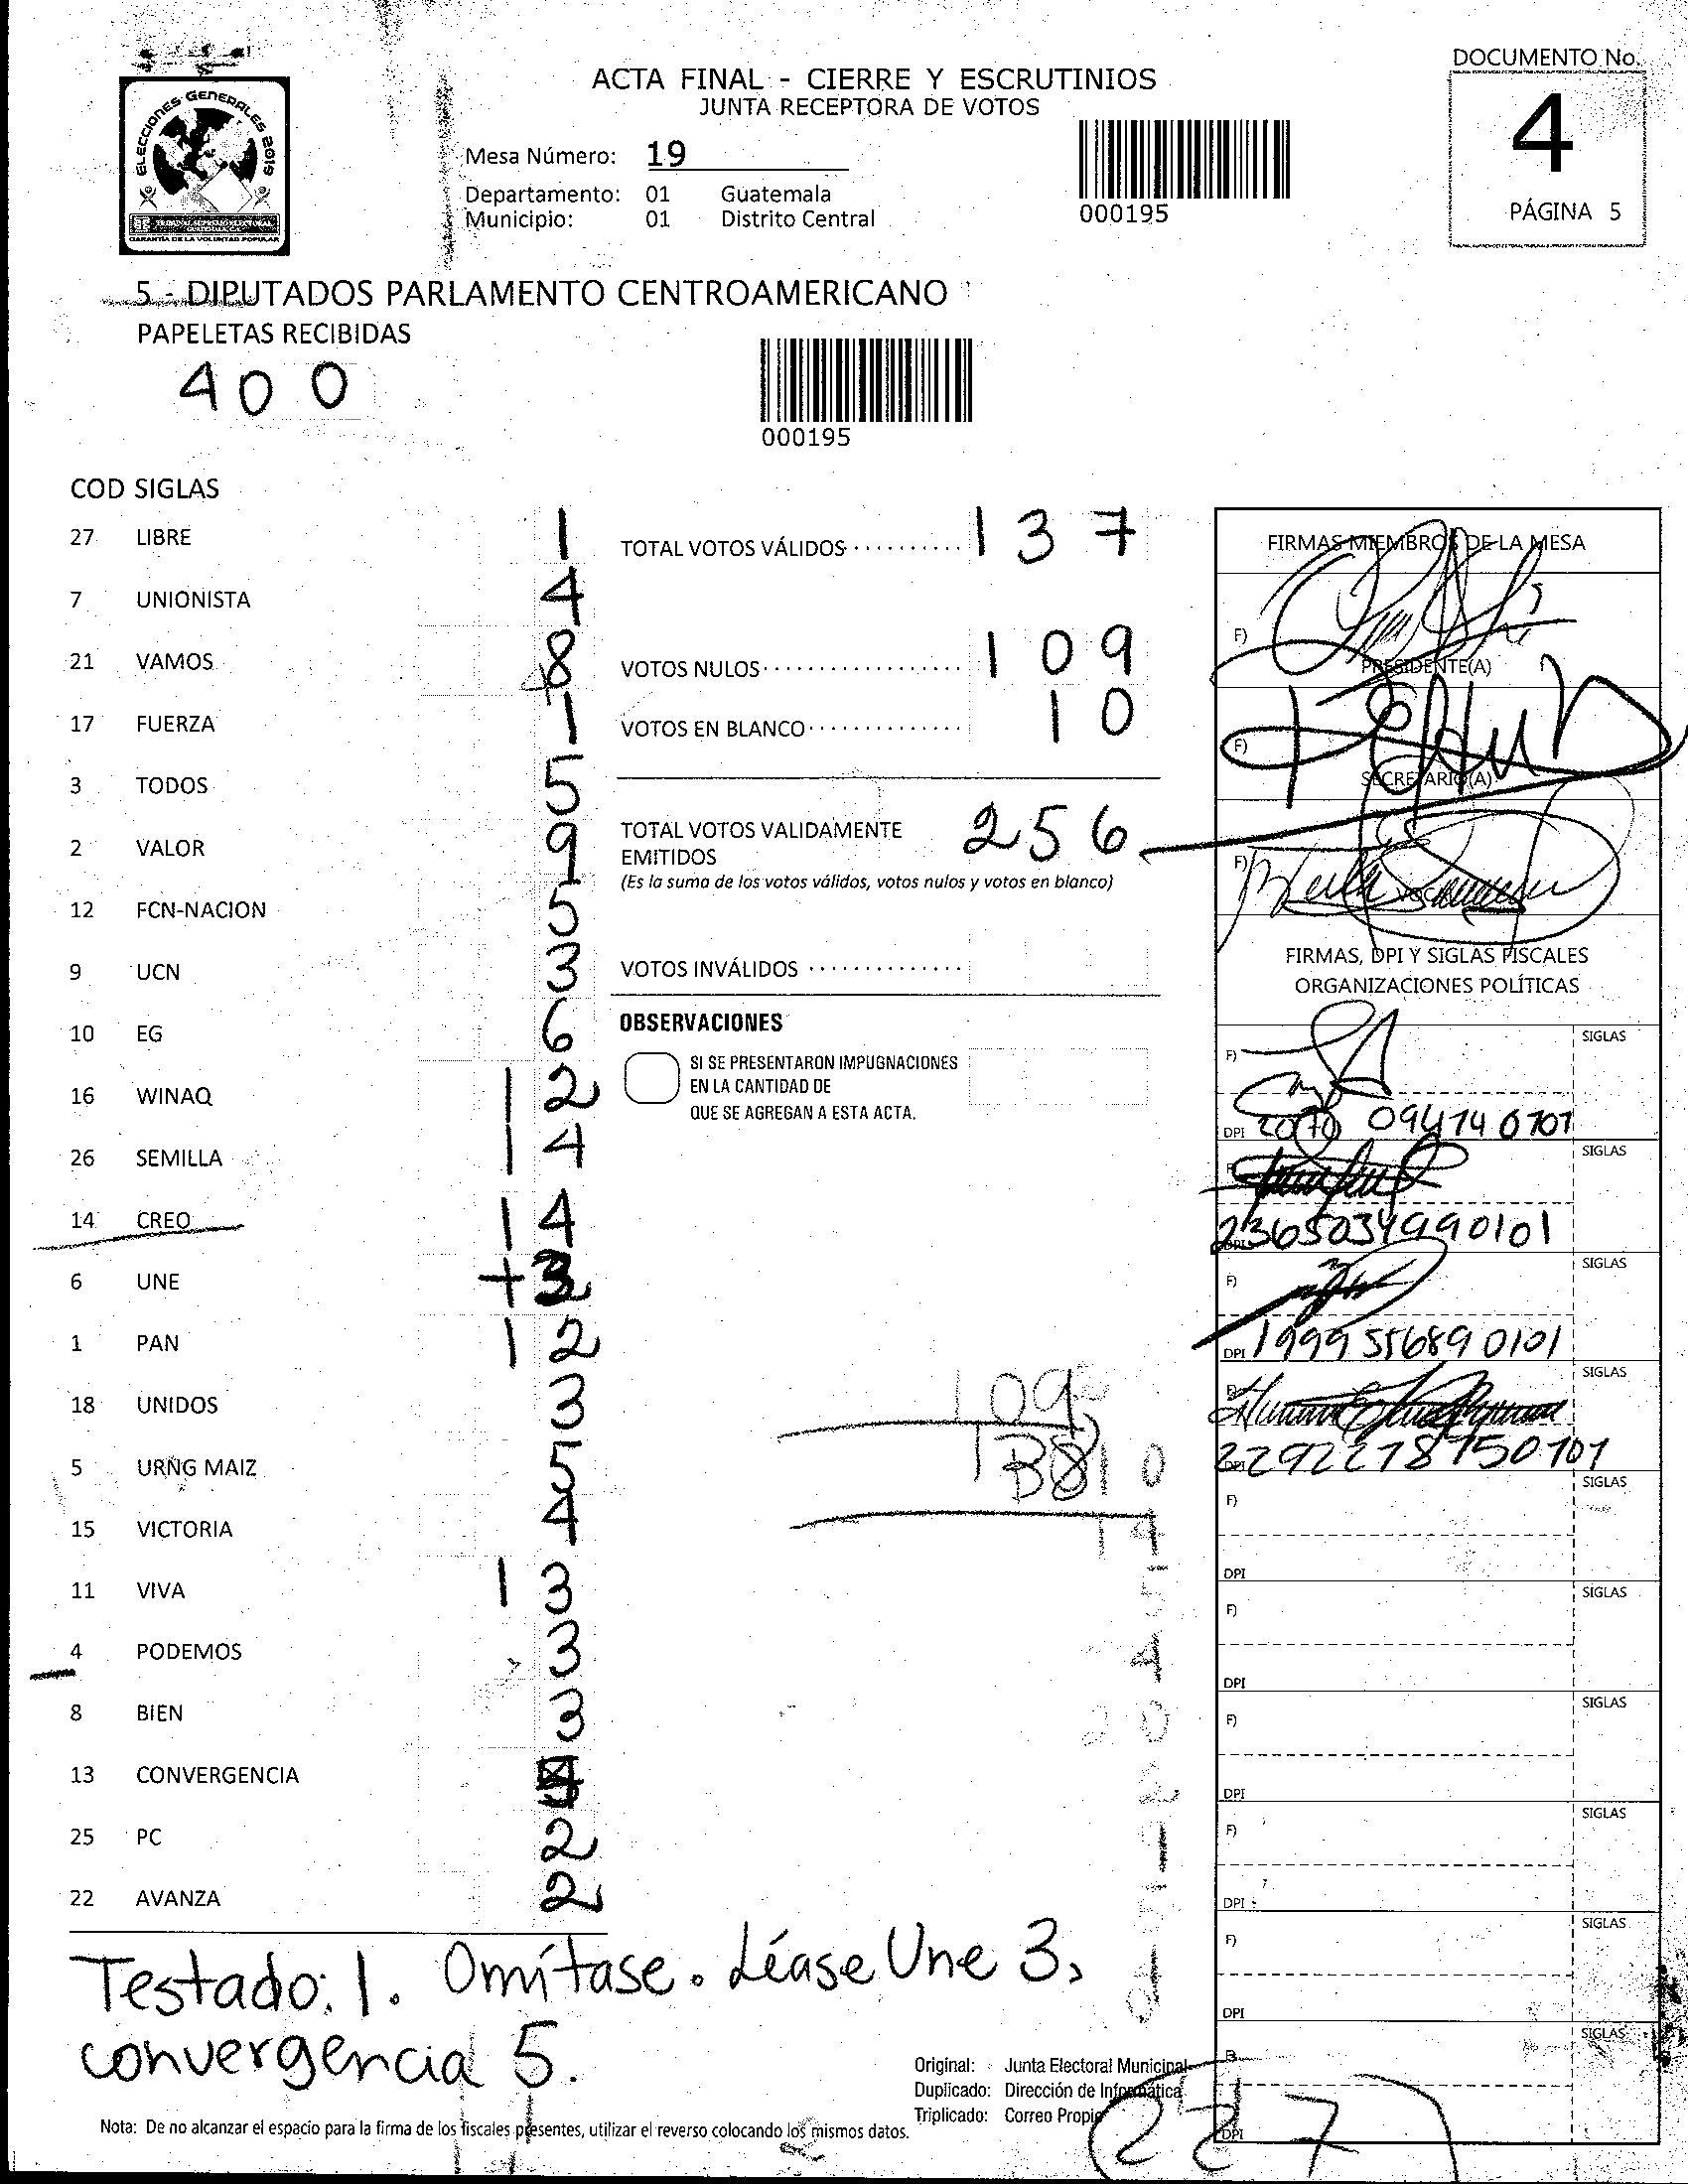 DOCUMENTO No.
4
PÁGINA 5
ELECCIONES GENERALES 2019
GARANTÍA DE LA VOLUNTAD POPULAR
ACTA FINAL - CIERRE Y ESCRUTINIOS
JUNTA RECEPTORA DE VOTOS
Mesa Número: 19
Departamento: 01 Guatemala
Municipio: 01 Distrito Central
000195
5 - DIPUTADOS PARLAMENTO CENTROAMERICANO
PAPELETAS RECIBIDAS
400
000195
COD SIGLAS
27 LIBRE 1
7 UNIONISTA 4
21 VAMOS 8
17 FUERZA 1
3 TODOS 5
2 VALOR 9
12 FCN-NACION 5
9 UCN 3
10 EG 6
16 WINAQ 12
26 SEMILLA 14
14 CREO 14
6 UNE 3
1 PAN 12
18 UNIDOS 3
5 URNG MAIZ 5
15 VICTORIA 4
11 VIVA 13
4 PODEMOS 3
8 BIEN 3
13 CONVERGENCIA
25 PC 2
22 AVANZA 2
TOTAL VOTOS VÁLIDOS 137
VOTOS NULOS 109
VOTOS EN BLANCO 10
TOTAL VOTOS VALIDAMENTE EMITIDOS 256
(Es la suma de los votos válidos, votos nulos y votos en blanco)
VOTOS INVÁLIDOS
OBSERVACIONES
SI SE PRESENTARON IMPUGNACIONES
EN LA CANTIDAD DE
QUE SE AGREGAN A ESTA ACTA.
109
FIRMAS MIEMBROS DE LA MESA
F)
PRESIDENTE(A)
F)
SECRETARIO(A)
F)
FIRMAS, DPI Y SIGLAS FISCALES
ORGANIZACIONES POLÍTICAS
F) SIGLAS
DPI 094740701
SIGLAS
2365034990101
F) SIGLAS
DPI 1999 55689 0101
SIGLAS
2292278750101
F) SIGLAS
DPI
F) SIGLAS
DPI
F) SIGLAS
DPI
F) SIGLAS
DPI
F) SIGLAS
DPI
F) SIGLAS
DPI
SIGLAS
DPI
Testado: 1. Omítase. Léase Une 3,
convergencia 5.
Original: Junta Electoral Municipal
Duplicado: Dirección de Informática
Triplicado: Correo Propio
227
Nota: De no alcanzar el espacio para la firma de los fiscales presentes, utilizar el reverso colocando los mismos datos.